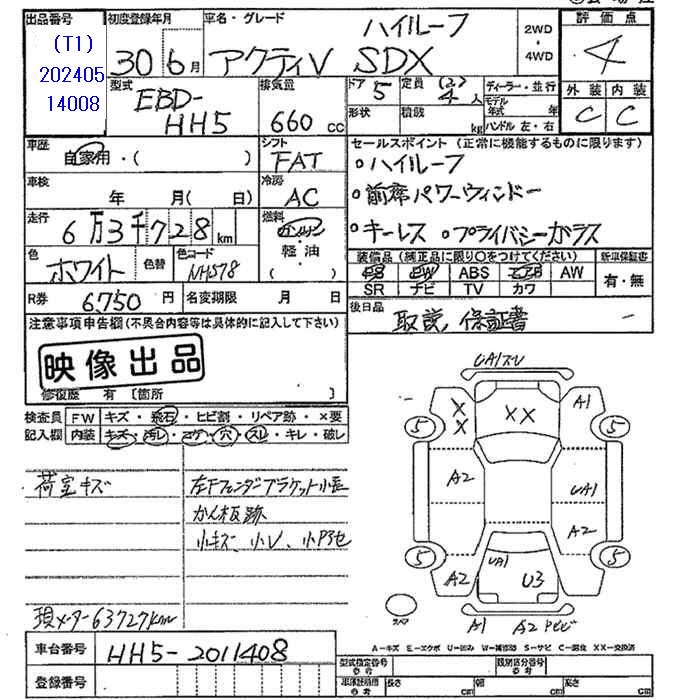 出品番号
(T1)
202405
14008
初度登録年月
30 6月
車名・グレード
ハイルーフ
アクティV SDX
2WD
・
4WD
評価点
4
外装 内装
C C
型式
EBD-
HH5
排気量
660 cc
ドア 5
形状
定員 (2) 4 人
積載 kg
ディーラー・並行
モデル年式 年
ハンドル 左・右
車歴
自家用・( )
シフト
FAT
車検
年 月( 日)
冷房
AC
走行
6万3千728km
燃料
ガソリン
軽油
色
ホワイト
色替
色コード
NH578
R券 6,750円
名変期限 月 日
セールスポイント(正常に機能するものに限ります)
・ハイルーフ
・前席パワーウィンドー
・キーレス ・プライバシーガラス
装備品(純正品に限り○をつけてください)
新車保証書
PS PW ABS エアB AW
SR ナビ TV カワ
有・無
後日品
取説、保証書
注意事項申告欄(不具合内容等は具体的に記入して下さい)
映像出品
修復歴 有 〔箇所 〕
検査員
記入欄
FW キズ・飛石・ヒビ割・リペア跡・×要
内装 キズ・汚レ・コゲ・穴・スレ・キレ・破レ
荷室キズ
左Fフェンダーブラケット小歪
かん板跡
小キズ、小U、小P3セ
現メーター63727km
UA1スリ
XX
X
X
A1
5
5
A2
UA1
A2
5
5
A2
UA1
U3
スペア
A1
A2 Pヒビ
A−キズ E−エクボ U−凹み W−補修跡 S−サビ C−腐食 XX−交換済
車台番号
HH5-2011408
登録番号
型式指定番号
類別区分番号
車庫証明用
参考
長さ cm
幅 cm
高さ cm